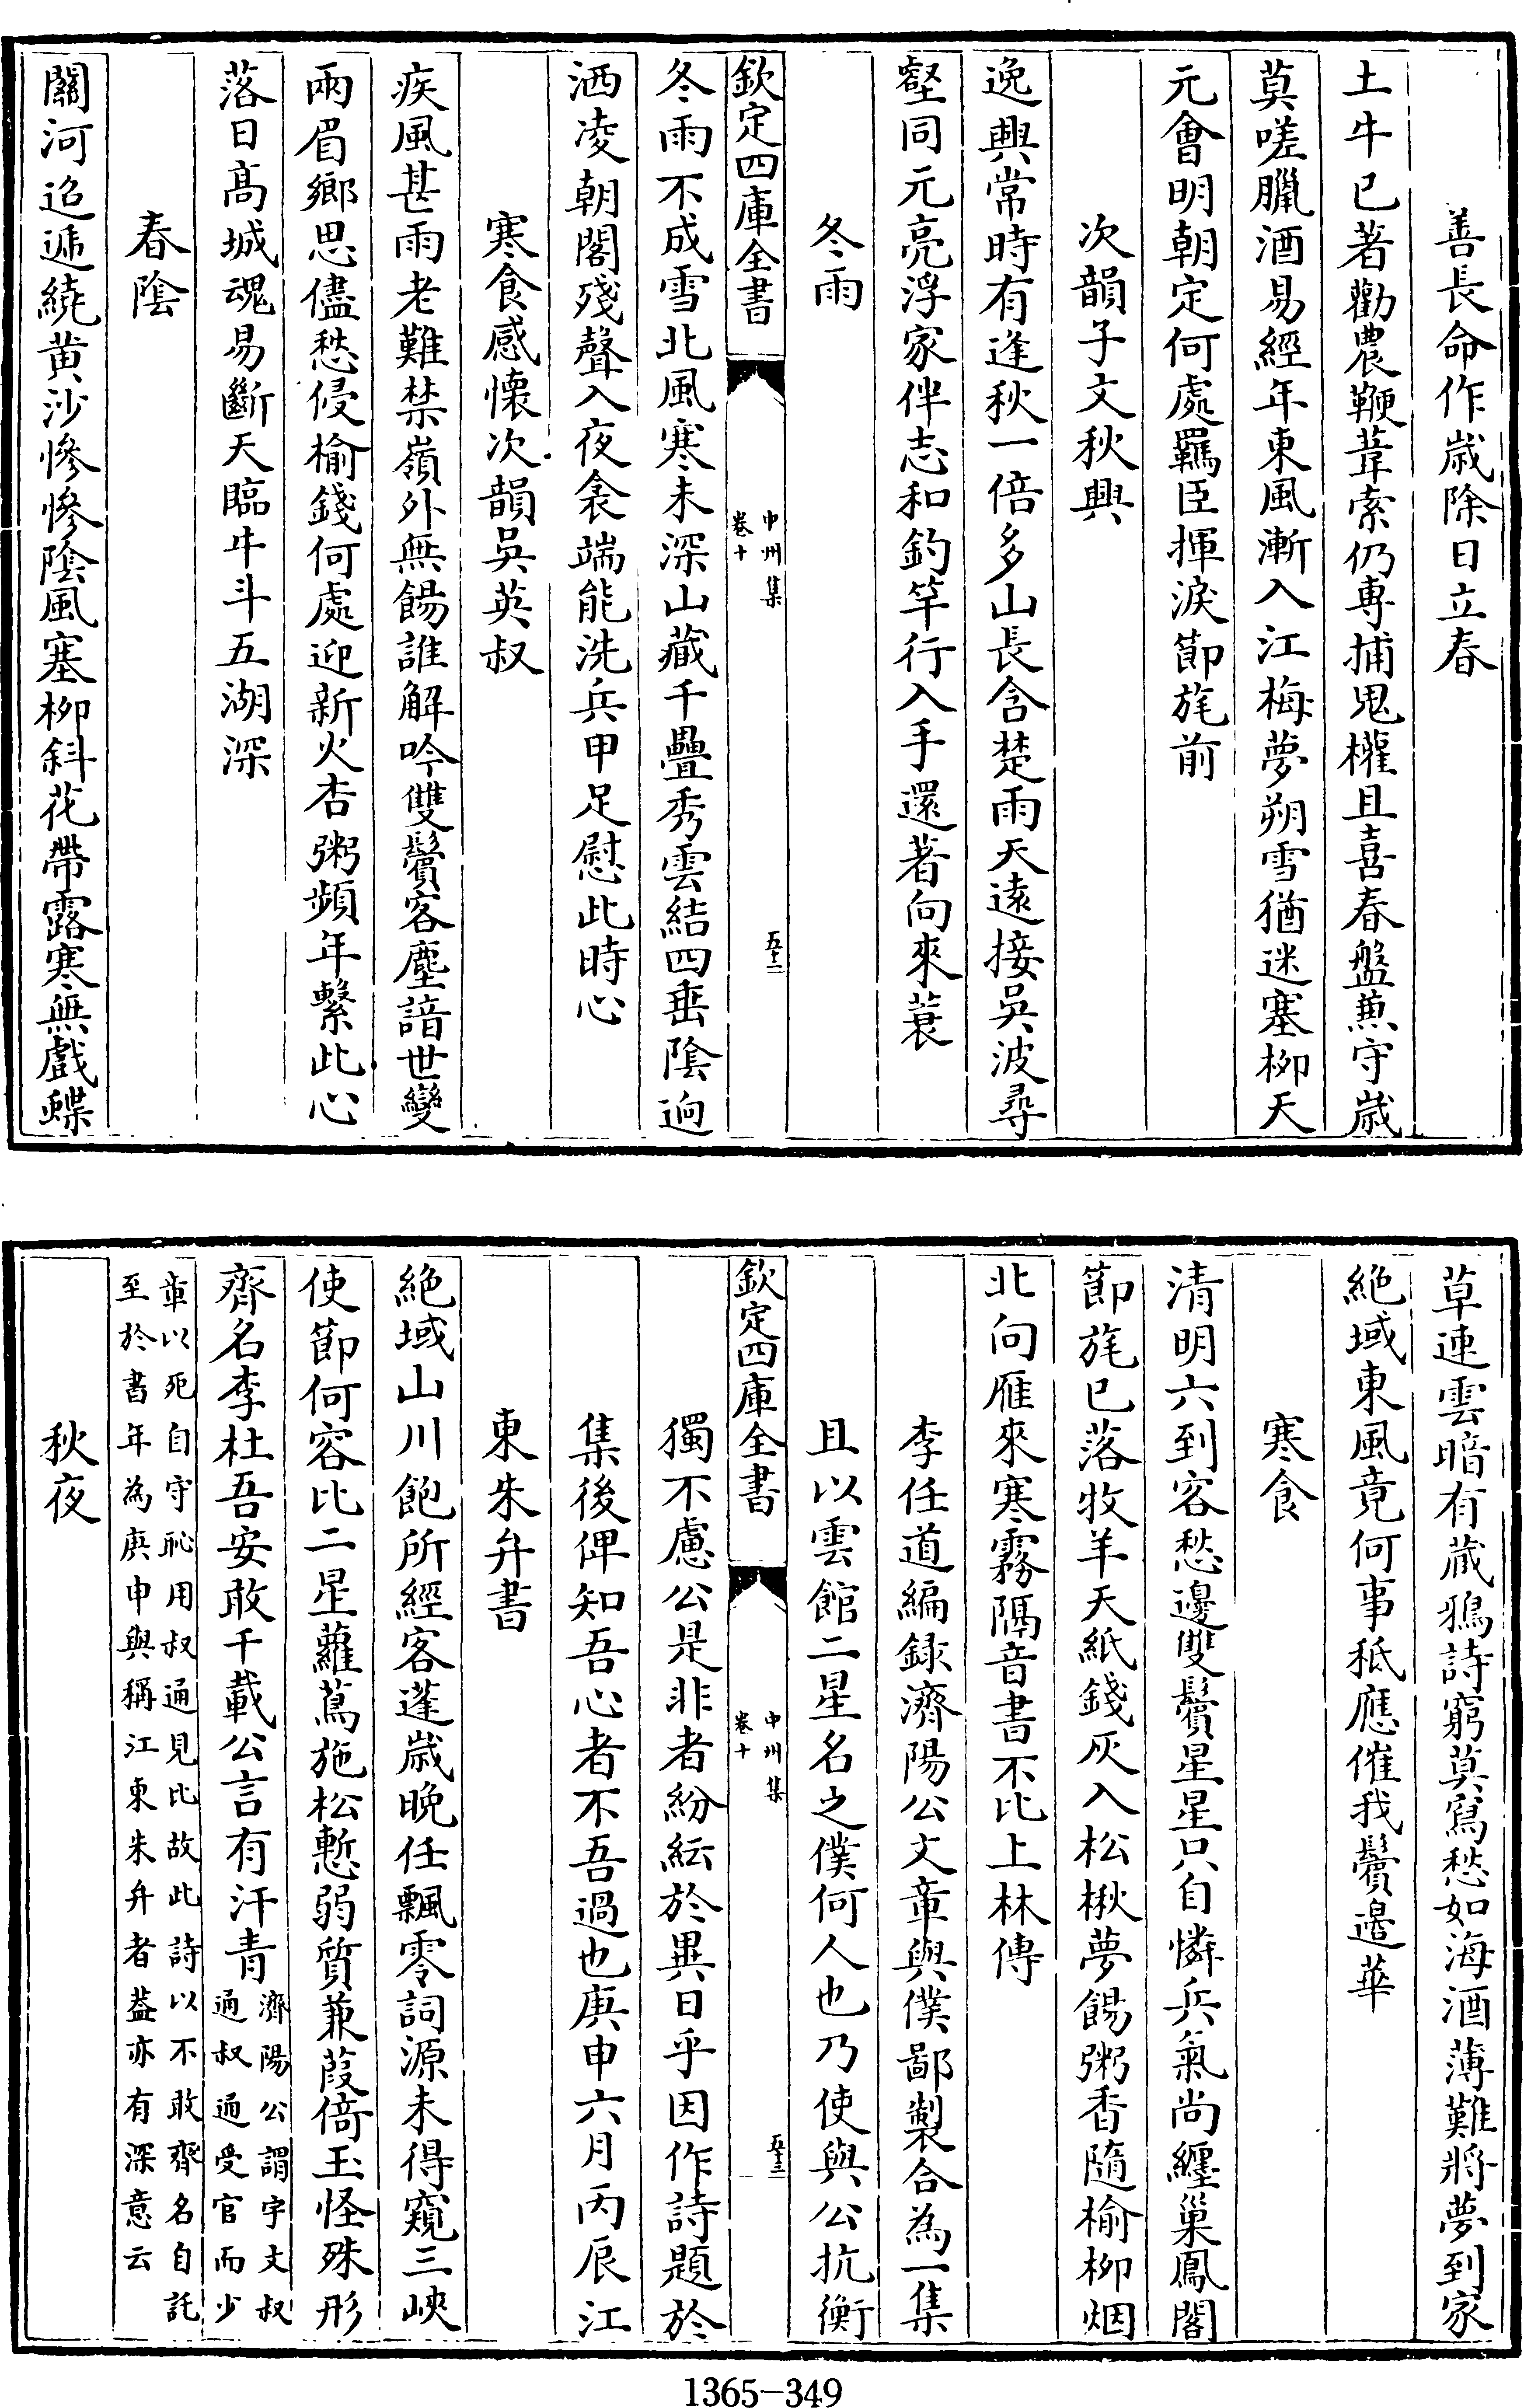 善長命作嵗除日立春
土牛已著勸農鞭葦索仍專捕鬼權且喜春盤蕪守嵗
莫嗟臘酒易經年東風漸入江梅夢朔雪猶迷塞柳天
元會明朝定何處羈臣揮淚節旄前
次韻子文秋興
逸興常時有逢秋一倍多山長含楚雨天遠接吳波尋
壑同元亮浮家伴志和釣竿行入手還著向來蓑
冬雨
欽定四庫全書
中州集
卷十
五十二
冬雨不成雪北風寒未深山藏千疊秀雲結四垂陰逈
洒凌朝閣殘聲入夜衾端能洗兵甲足慰此時心
寒食感懷次韻吳英叔
疾風甚雨老難禁嶺外無餳誰解吟雙鬢客塵諳世變
兩眉鄉思儘愁侵榆錢何處迎新火杏粥頻年繫此心
落日髙城魂易斷天臨牛斗五湖深
春陰
關河迢遞繞黄沙慘慘陰風塞柳斜花帶露寒無戲蝶
草連雲暗有蔵鴉詩窮莫寫愁如海酒薄難將夢到家
絶域東風竟何事秪應催我鬢邉華
寒食
清明六到客愁邊雙鬢星星只自憐兵氣尚纒巢鳳閣
節旄已落牧羊天紙錢灰入松楸夢餳粥香隨榆柳烟
北向雁來寒霧隔音書不比上林傳
李任道編録濟陽公文章與僕鄙製合為一集
且以雲館二星名之僕何人也乃使與公抗衡
欽定四庫全書
中州集
卷十
五十三
獨不慮公是非者紛紜於異日乎因作詩題於
集後俾知吾心者不吾過也庚申六月丙辰江
東朱弁書
絶域山川飽所經客蓬嵗晚任飄零詞源未得窺三峽
使節何容比二星蘿蔦施松慙弱質蒹葭倚玉怪殊形
齊名李杜吾安敢千載公言有汗青濟陽公謂宇文叔
通叔通受官而少
章以死自守恥用叔通見比故此詩以不敢齊名自託
至於書年為庚申與稱江東朱弁者葢亦有深意云
秋夜
1365-349